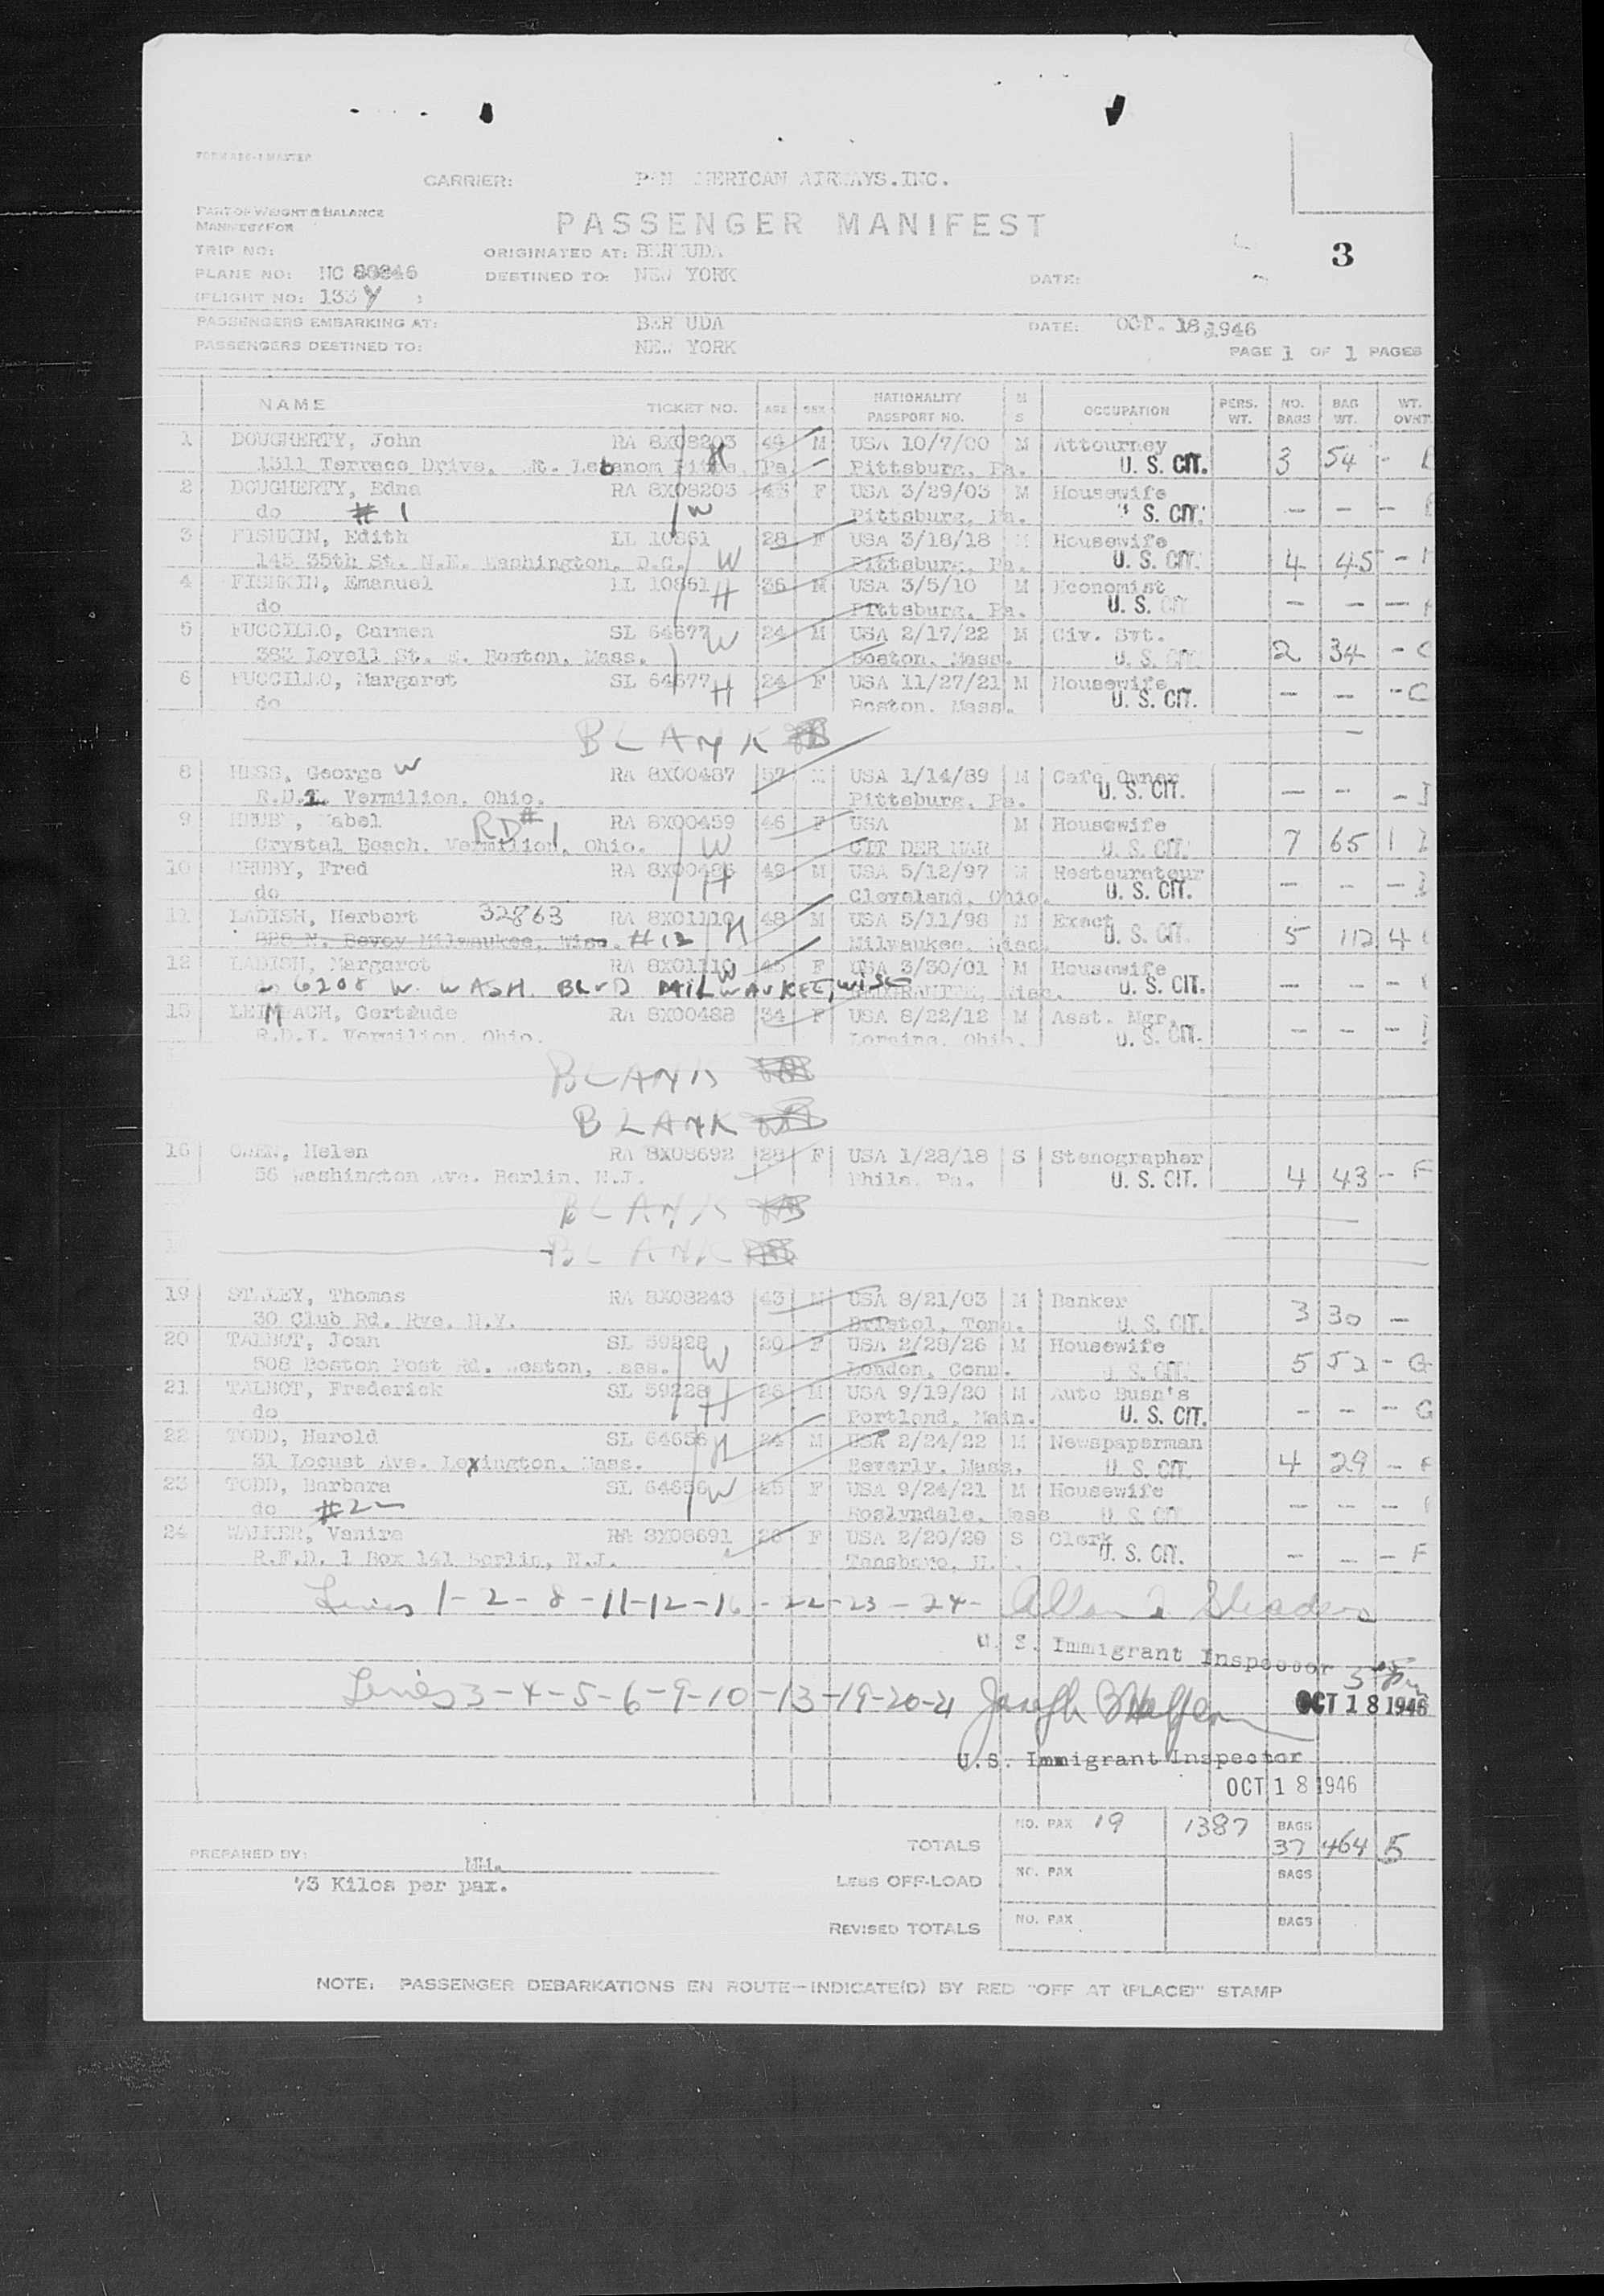 FORM 436-1 MASTER
CARRIER: PAN AMERICAN AIRWAYS.INC.
PART OF WEIGHT & BALANCE
MANIFEST FOR
PASSENGER MANIFEST
TRIP NO: ORIGINATED AT: BERMUDA
3
PLANE NO: NC 88846 DESTINED TO: NEW YORK DATE:
(FLIGHT NO: 133 Y )
PASSENGERS EMBARKING AT: BERMUDA DATE: OCT. 18,1946
PASSENGERS DESTINED TO: NEW YORK
PAGE 1 OF 1 PAGES
NAME TICKET NO. AGE SEX NATIONALITY PASSPORT NO. M S OCCUPATION PERS. WT. NO. BAGS BAG WT. WT. OVWT
1 DOUGHERTY, John RA 8X08203 49 M USA 10/7/00 M Attourney
1311 Terrace Drive, Mt. Lebanom Pitts. Pa. H Pittsburg, Pa. U. S. CIT. 3 54 -
2 DOUGHERTY, Edna RA 8X08203 43 F USA 3/29/03 M Housewife
do # 1 W Pittsburg, Pa. U S. CIT. - - -
3 FISHKIN, Edith LL 10861 28 F USA 3/18/18 M Housewife
145 35th St. N.E. Washington, D.C. W Pittsburg, Pa. U. S. CIT. 4 45 -
4 FISHKIN, Emanuel LL 10861 H 36 M USA 3/5/10 M Economist
do Pittsburg, Pa. U. S. CIT - - -
5 FUCCILLO, Carmen SL 64677 W 24 M USA 2/17/22 M Civ. Svt.
383 Lovell St. E. Boston, Mass. Boston, Mass. U. S. CIT. 2 34 - C
6 FUCCILLO, Margaret SL 64677 H 24 F USA 11/27/21 M Housewife
do Boston, Mass. U. S. CIT. - - - C
BLANK
8 HESS, George W RA 8X00487 57 M USA 1/14/89 M Cafe Owner
R.D.1. Vermilion, Ohio. Pittsburg, Pa. U. S. CIT. - - -
9 HRUBY, Mabel RD #1 RA 8X00459 46 F USA M Housewife
Crystal Beach, Vermilion, Ohio. W CIT DER MAR U. S. CIT. 7 65 1
10 HRUBY, Fred RA 8X00486 49 M USA 5/12/97 M Restaurateur
do H Cleveland, Ohio. U. S. CIT. - - -
11 LADISH, Herbert 32863 RA 8X01110 48 M USA 5/11/98 M Exact
828 N. Bevoy Milwaukee, Wisc. # 12 H Milwaukee, Wisc. U. S. CIT. 5 112 4
12 LADISH, Margaret RA 8X01110 W 45 F USA 3/30/01 M Housewife
6208 W. WASH. BLVD MILWAUKEE, WISC U. S. CIT. - - -
13 LEIMBACH, Gertrude RA 8X00488 34 F USA 8/22/12 M Asst. Mgr.
R.D.1. Vermilion, Ohio. Loraine, Ohio. U. S. CIT. - - -
BLANK
BLANK
16 OWEN, Helen RA 8X08692 28 F USA 1/28/18 S Stenographer
56 Washington Ave. Berlin, N.J. Phila. Pa. U. S. CIT. 4 43 - F
BLANK
BLANK
19 STALEY, Thomas RA 8X08243 43 M USA 8/21/03 M Banker
30 Club Rd. Rye, N.Y. Bristol, Tenn. U. S. CIT. 3 30 -
20 TALBOT, Joan SL 59228 20 F USA 2/28/26 M Housewife
508 Boston Post Rd. Weston, Mass. W London, Conn. U. S. CIT. 5 52 - G
21 TALBOT, Frederick SL 59228 26 M USA 9/19/20 M Auto Busn's
do H Portland, Main. U. S. CIT. - - - G
22 TODD, Harold SL 64656 H 24 M USA 2/24/22 M Newspaperman
31 Locust Ave. Lexington, Mass. Beverly, Mass. U. S. CIT. 4 29 - F
23 TODD, Barbara SL 64656 W 25 F USA 9/24/21 M Housewife
do #22 Roslyndale, Mass U. S. CIT. - - -
24 WALKER, Vanira RA 8X08691 26 F USA 2/20/20 S Clerk
R.F.D. 1 Box 141 Berlin, N.J. Tansboro, N.J. U. S. CIT. - - - F
Lines 1-2-8-11-12-16-22-23-24-
U. S. Immigrant Inspector
Lines 3-4-5-6-9-10-13-19-20-21 Joseph OCT 18 1946
U.S. Immigrant Inspector
OCT 18 1946
TOTALS NO. PAX 19 1387 BAGS 37 464 5
PREPARED BY: MM.
73 Kilos per pax.
LESS OFF-LOAD NO. PAX BAGS
REVISED TOTALS NO. PAX BAGS
NOTE: PASSENGER DEBARKATIONS EN ROUTE—INDICATE(D) BY RED "OFF AT (PLACE)" STAMP